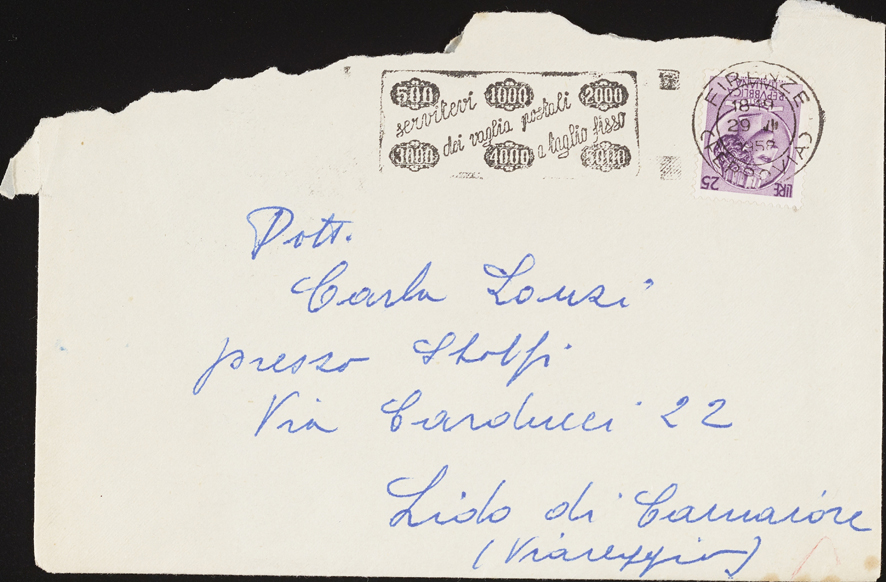 500 1000 2000
servitevi
dei vaglia postali
a taglio fisso
3000 4000 5000
FIRENZE
18-19
29
FERROVIA
LIRE 25
Dott.
Carla Lonzi
presso Stolfi
Via Carducci 22
Lido di Camaiore
(Viareggio)